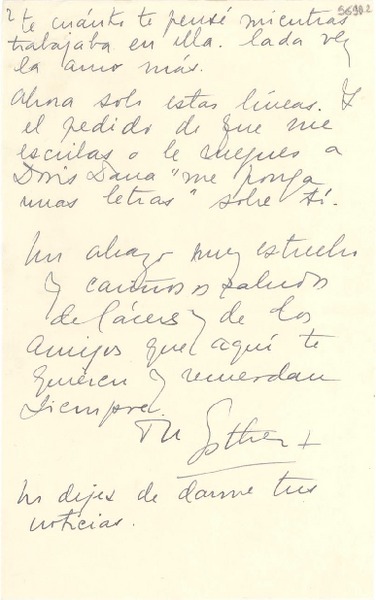 2
5690.2
te cuánto te pensé mientras
trabajaba en ella. Cada vez
la amo más.
Ahora solo estas líneas. Y
el pedido de que me
escribas o le ruegues a
Doris Dana "me ponga
unas letras" sobre tí.
Un abrazo muy estrecho
y cariñosos saludos
de Cáceres y de los
amigos que aquí te
quieren y recuerdan
siempre.
Tu Esther
No dejes de darme tus
noticias.